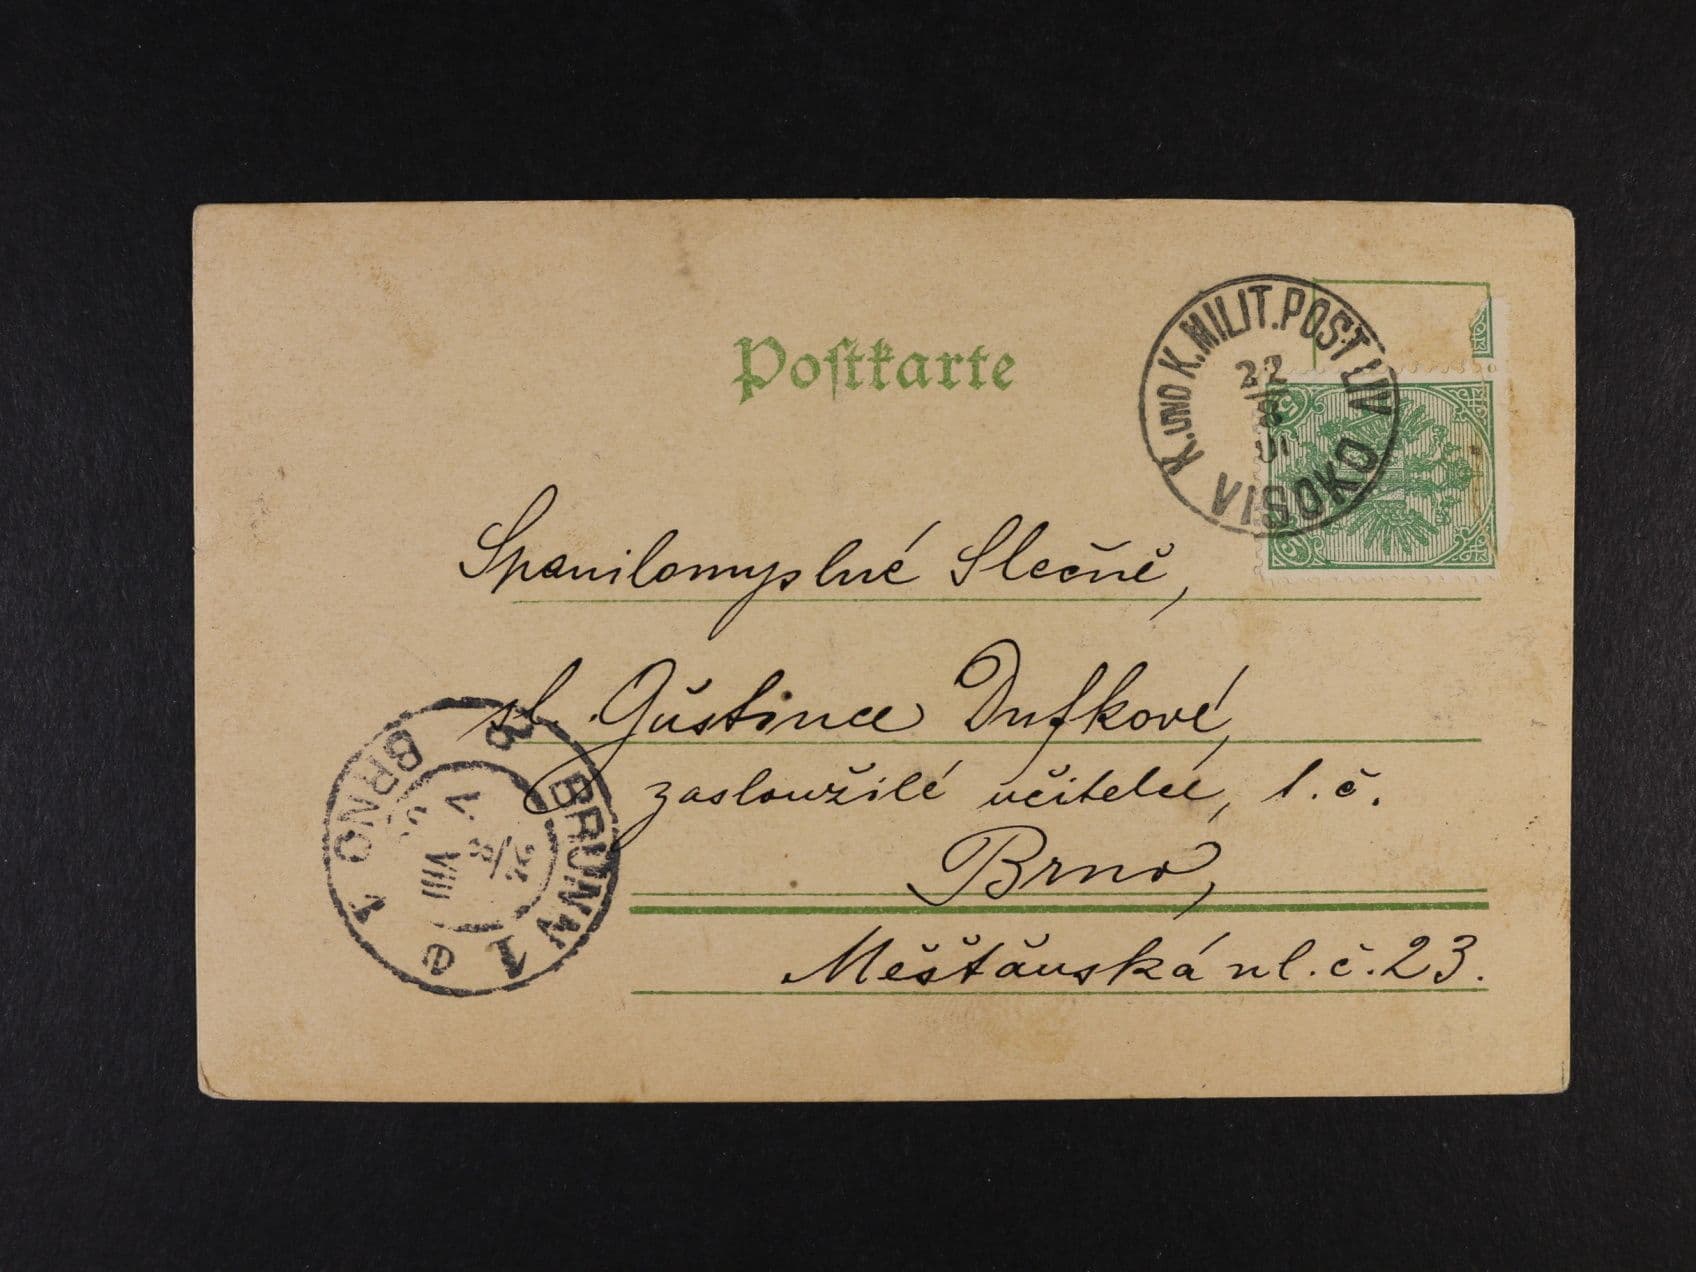 Postkarte
K. UND K. MILIT. POST LIV
22
8
01
VISOKO
5
5
Spanilomyslné Slečně,
sl. Gůstince Dufkové,
zasloužilé učitelce, t. č.
Brno,
Měšťánská ul. č. 23.
BRÜNN 1
BRNO 1
VIII